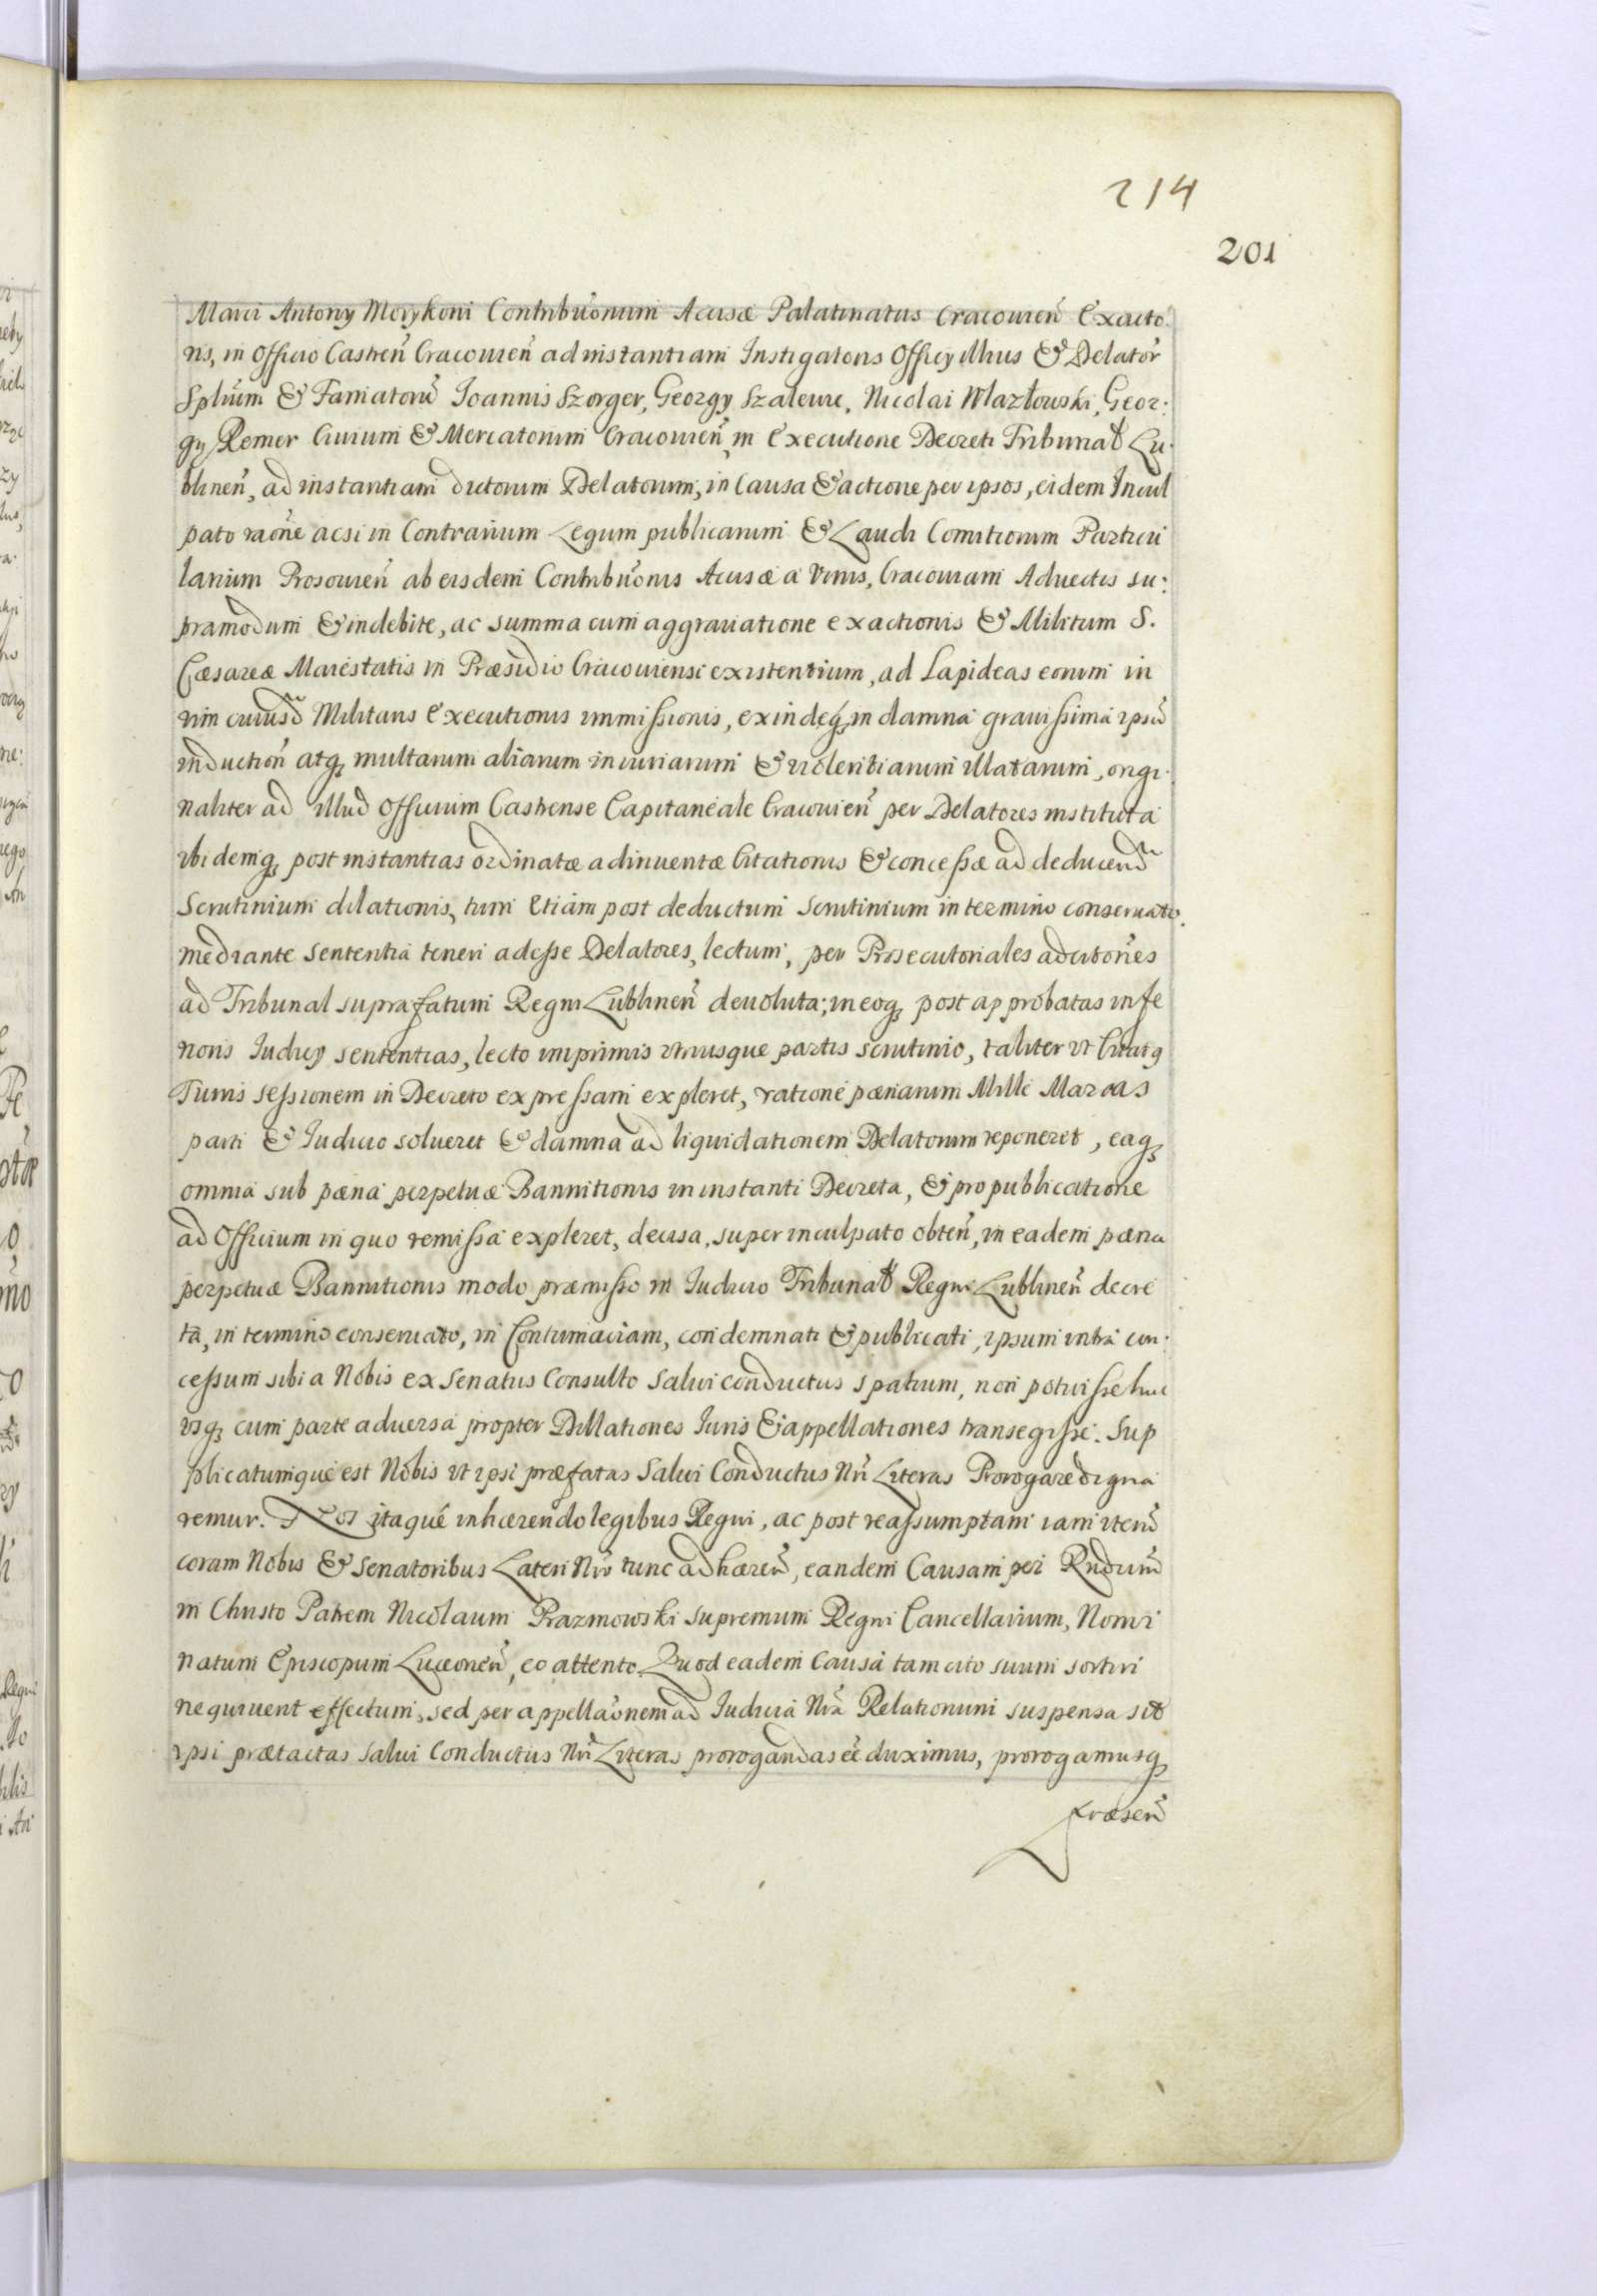 214
201
Marci Antony Morykoni Contribuōnum Acisæ Palatinatus Cracouien̄ Exacto:
ris, in Officio Castren̄ Cracouien̄ ad instantiam Instigatoris Officy illius & Delator̄
Splium & Famatorū Ioannis Szorger, Georgy Szaleure, Nicolai Wlazłowski, Geor:
gy Remer Ciuium & Mercatorum Cracouien̄, in Executione Decreti Tribunal Lu:
blinen̄, ad instantiam dictorum Delatorum, in Causa & actione per ipsos, eidem Incul
pato raōne acsi in Contrarium Legum publicarum & Laudi Comitiorum Particu
larium Prosouien̄ ab eisdem Contribuōnis Acisæ a Vinis, Cracouiam Aduectis su:
pramodum & indebite, ac summa cum aggrauatione exactionis & Militum S.
Cæsareæ Maiestatis in Præsidio Cracouiensi existentium, ad Lapideas eorum in
vim cuiusd̄ Militaris Executionis immissionis, exindeq; in damna grauissima ipsū
induction̄ atq; multarum aliarum iniuriarum & violentiarum illatarum, origi:
naliter ad illud Officium Castrense Capitaneale Cracouien̄ per Delatores instituta
ibidemq; post instantias ordinatæ adinuentæ Citationis & concessæ ad deducend̄
Scrutinium dilationis, tum etiam post deductum scrutinium in termino conseruato.
mediante sententia teneri adesse Delatores, lectum, per Prosecutoriales adcitōnes
ad Tribunal suprafatum Regni Lublinen̄ deuoluta; in eoq; post approbatas infe
rioris Iudicy sententias, lecto imprimis vtriusque partis scrutinio, taliter vt Citatq
Turris sessionem in Decreto expressam expleret, ratione pænarum Mille Marcas
parti & Iudicio solueret & damna ad liquidationem Delatorum reponeret, eaq;
omnia sub pæna perpetuæ Bannitionis in instanti Decreta, & pro publicatione
ad Officium in quo remissa expleret, decisa, super inculpato obten̄, in eadem pæna
perpetuæ Bannitionis modo præmisso in Iudicio Tribunal Regni Lublinen̄ decre
ta, in termino conseruato, in Contumaciam, condemnati & publicati, ipsum intra con:
cessum sibi a Nobis ex Senatus Consulto Salui conductus spatium, non potuisse huc
vsq; cum parte aduersa propter Dillationes Iuris & appellationes transegisse. Sup
plicatumque est Nobis vt ipsi præfatas Salui Conductus Nr̄i Literas Prorogare digna
remur. Nos itaque inhærendo legibus Regni, ac post reassumptam iam iterū
coram Nobis & Senatoribus Lateri Nr̄o tunc adhæren̄, eandem Causam per Rndum
in Christo Patrem Nicolaum Prazmowski supremum Regni Cancellarium, Nomi
natum Episcopum Luceorien̄, eo attento Quod eadem Causa tam cito suum sortiri
nequiuent effectum, sed per appellaōnem ad Iudicia Nr̄a Relationum suspensa sit
ipsi prætactas Salui Conductus Nr̄i Literas prorogandas eē duximus, prorogamusq;
præsen̄